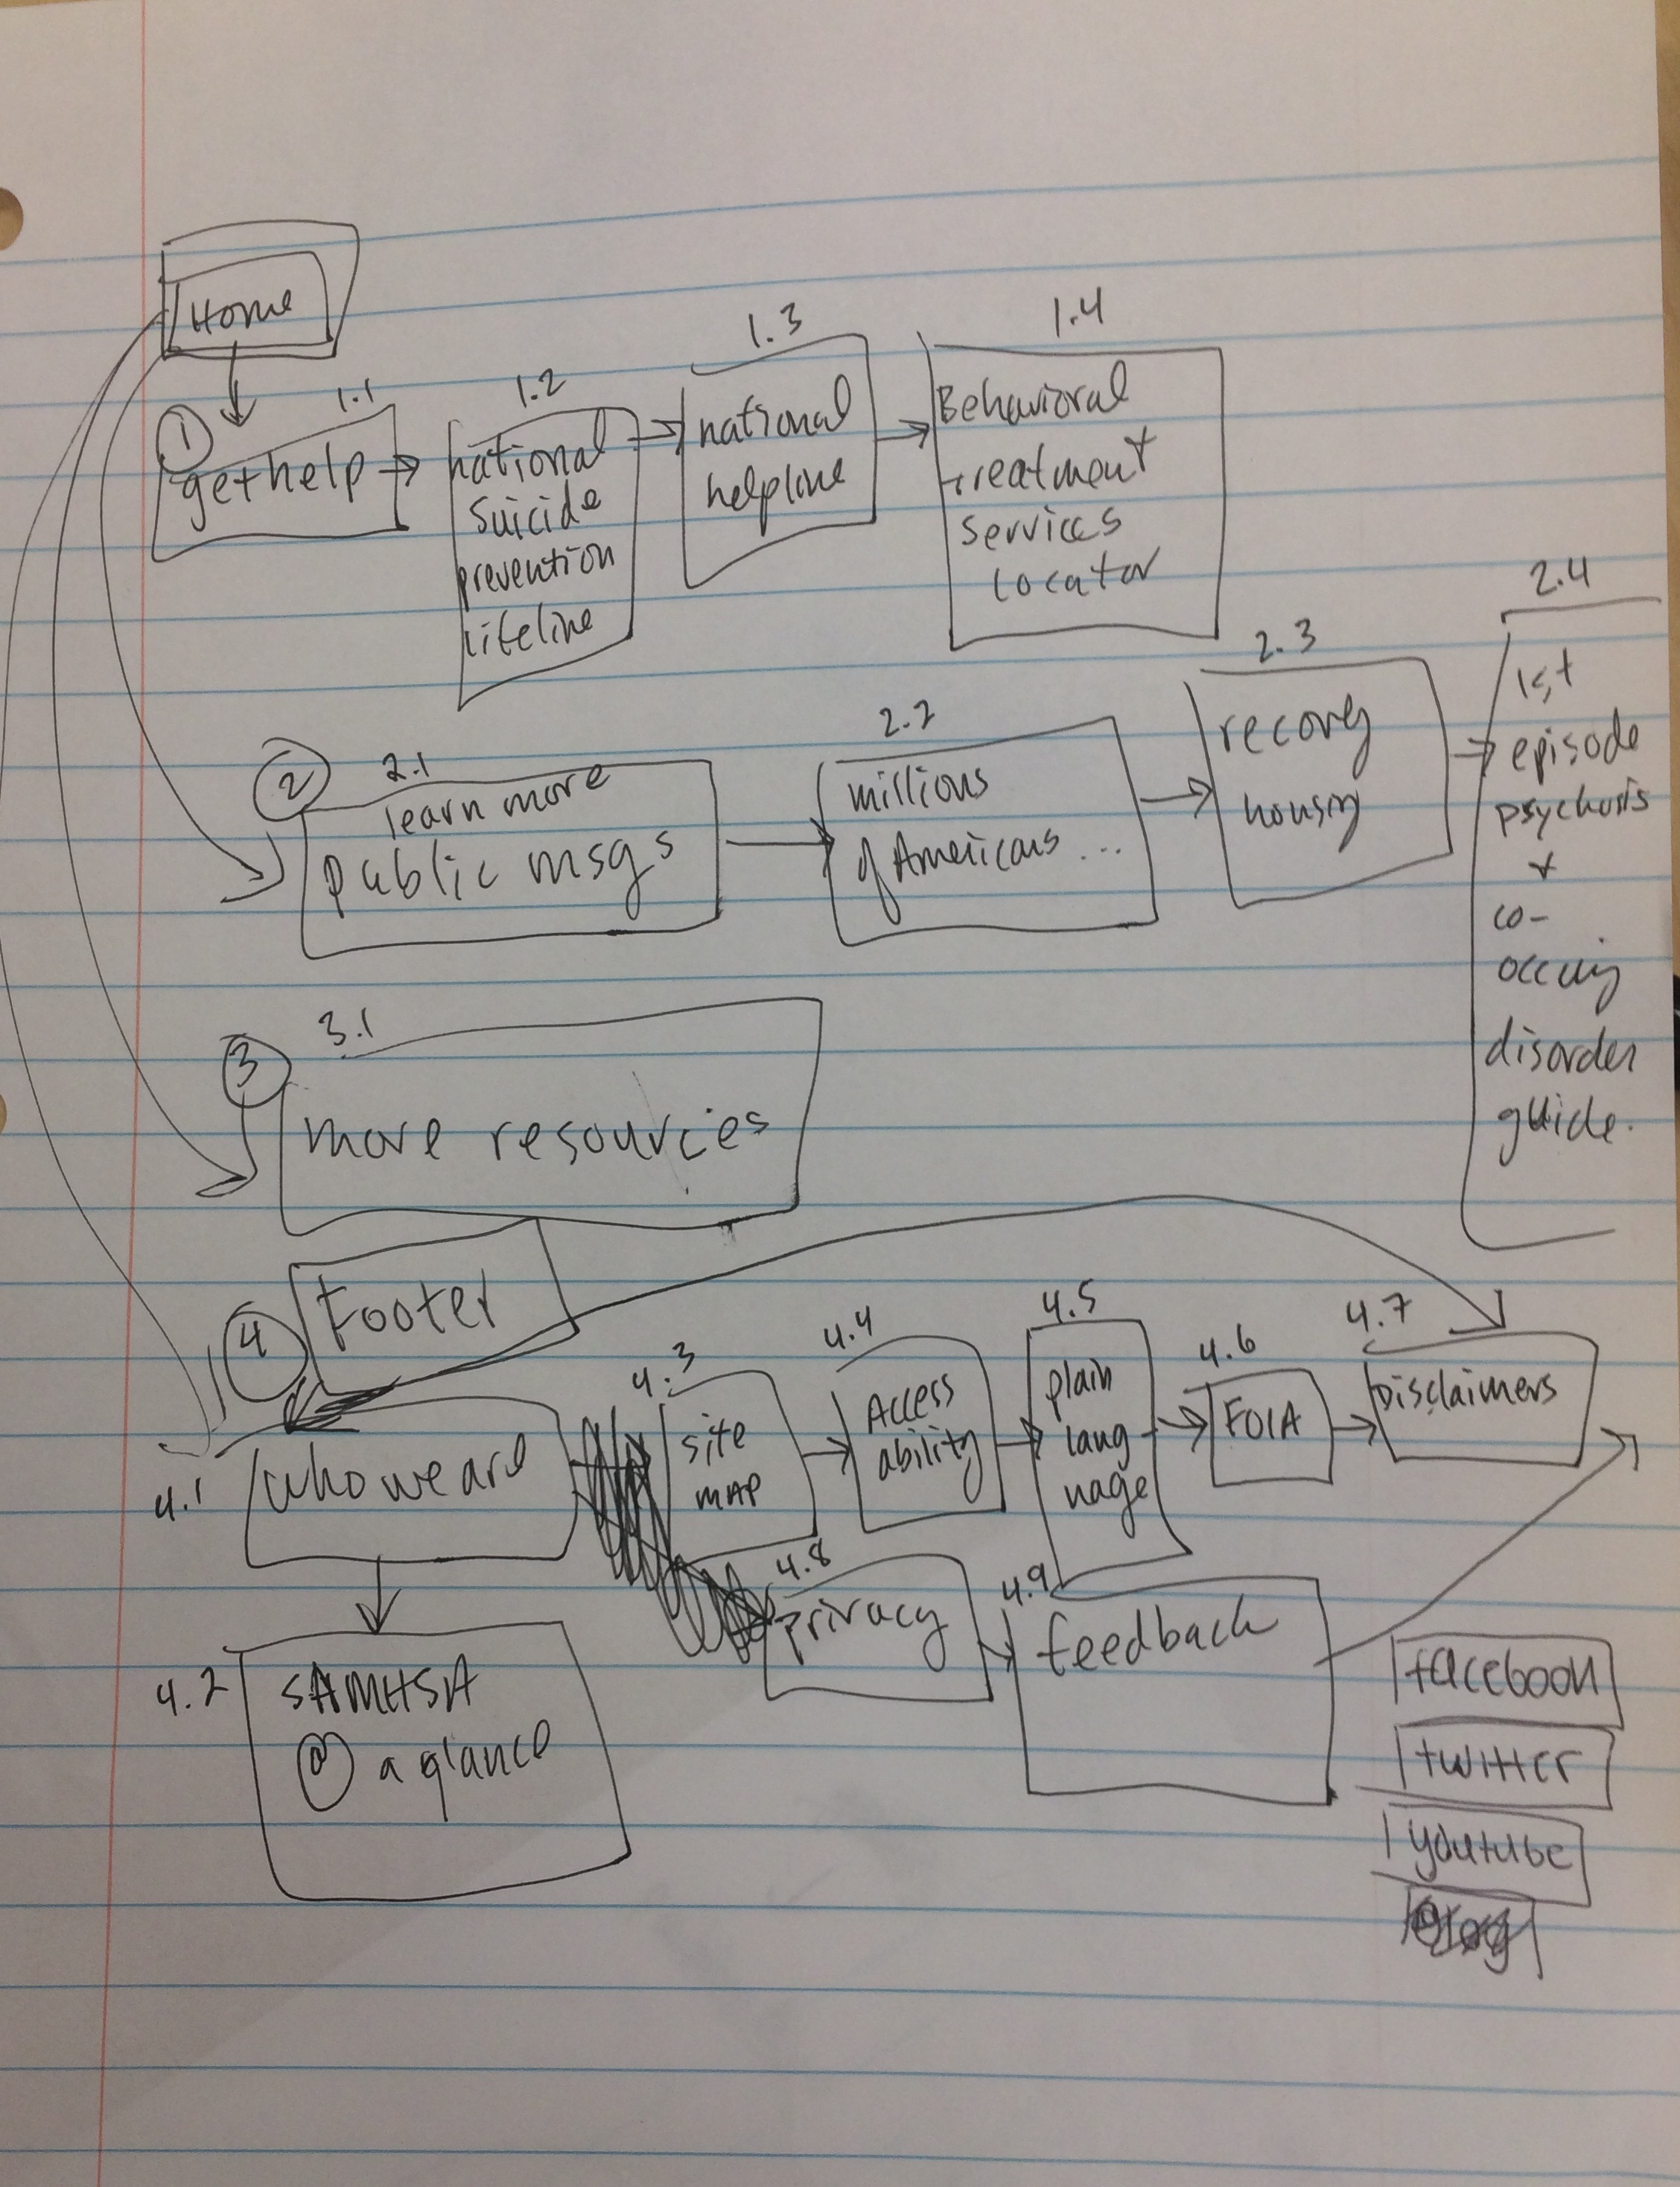 Home
1
1.1
get help
1.2
national
suicide
prevention
lifeline
1.3
national
helpline
1.4
Behavioral
treatment
services
locator
2
2.1
learn more
public msgs
2.2
millions
of Americans ...
2.3
recovry
housing
2.4
1st
episode
psychosis
+
co-
occuring
disorder
guide.
3
3.1
more resources
4
Footer
4.1
who we are
4.2
SAMHSA
@ a glance
4.3
site
MAP
4.4
Access
ability
4.5
plain
lang
uage
4.6
FOIA
4.7
Disclaimers
4.8
privacy
4.9
feedback
facebook
twitter
youtube